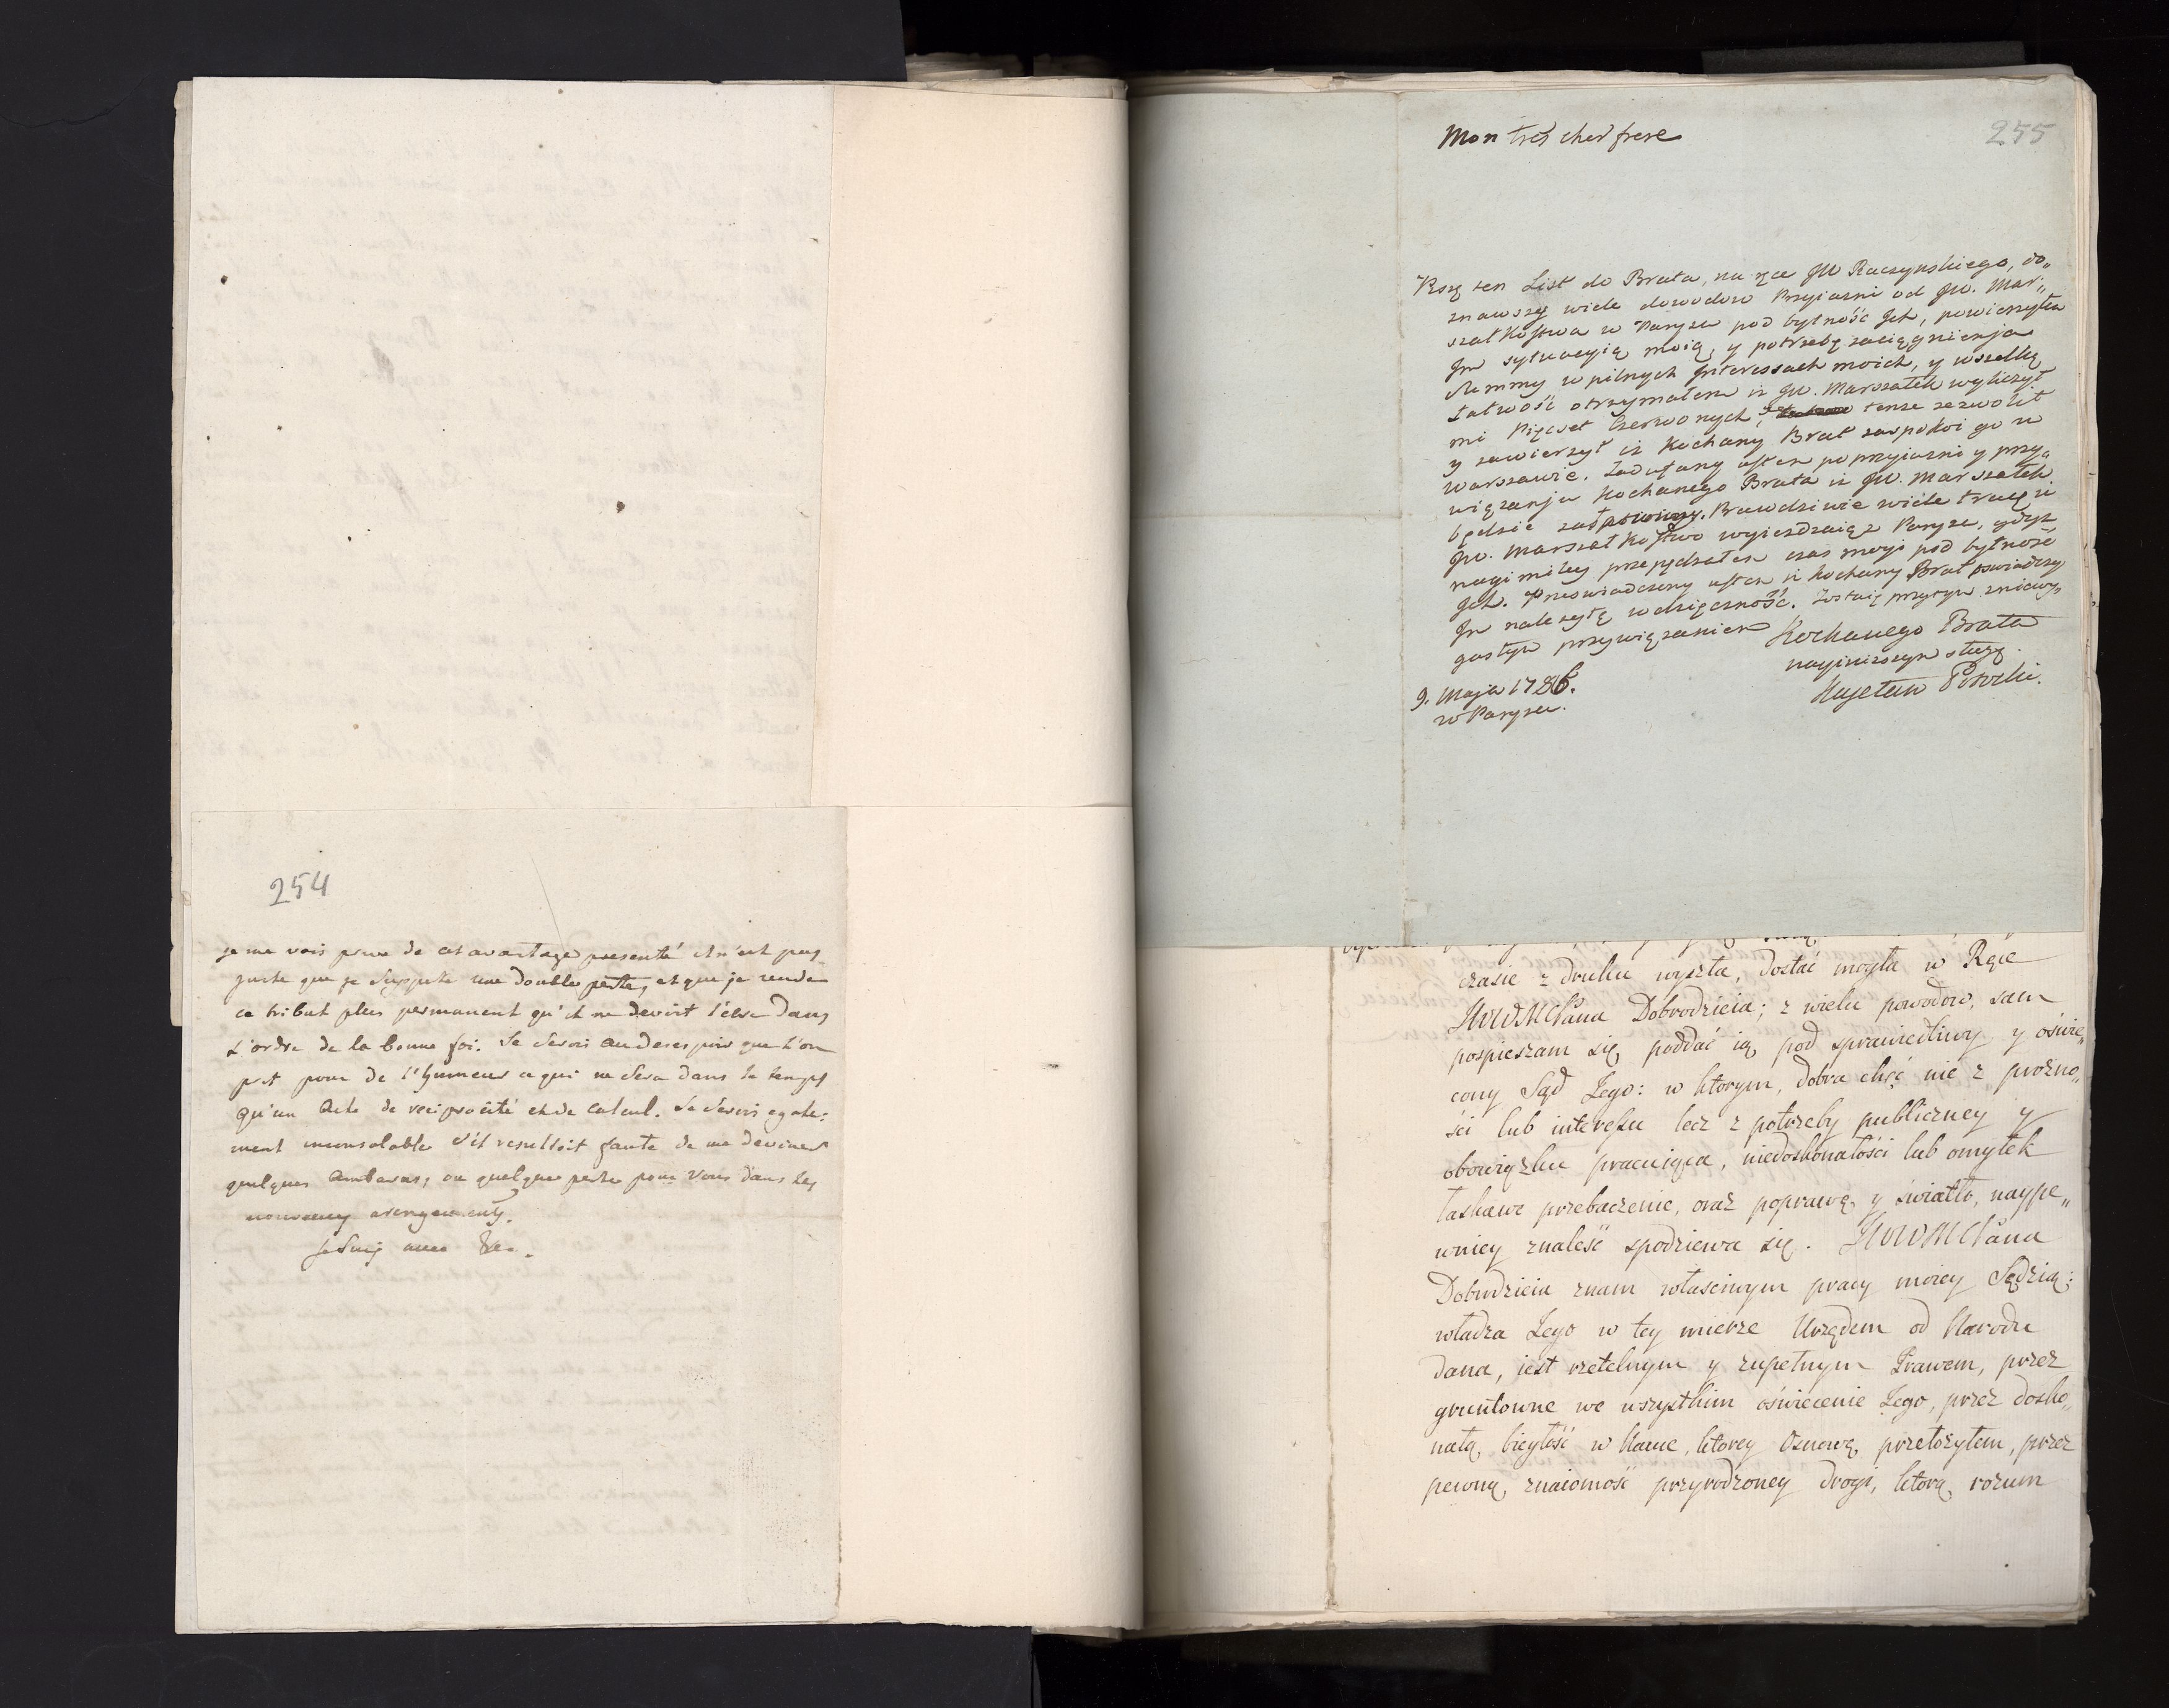 254
je me vois privé de cet avantage presenté il n'est pas
juste que je supporte une double perte, et que je rende
ce tribut plus permanent qu'il ne devoit l'être dans
l'ordre de la bonne foi. Je serois au desespoir que l'on
prit pour de l'humeur ce qui ne sera dans le temps
qu'un acte de reciprocité et de calcul. Je serois egale-
ment inconsolable s'il resultoit faute de me deviner
quelques embaras, ou quelque perte pour vous dans les
nouveaux arengements.
Je suis avec &c.
255
Mon tres cher frere
ten List do Brata, na ręce JW Raczynskiego, do„
znawszy wiele dowodow Przyiazni od JW. Mar„
szałkostwa w Paryżu pod bytność Ich, powierzyłem
Im sytuacyią moią, y potrzebę zaciągnienja
Summy w pilnych Interessach moich, y wszelką
łatwość otrzymałem iż JW. Marszałek wyliczył
mi Pięcset Czerwonych, tenże zezwolił
y zawierzył iż Kochany Brat zaspokoi go w
Warszawie. Zadufany jestem po przyiazni y przy„
wiązanju Kochanego Brata iż JW. Marszałek
będzie zaspokoiony. Prawdziwie wiele tracę iż
JW. Marszałkostwo wyiezdzaią z Paryża, gdyż
naymiley przepędzałem czas moy pod bytność
Ich. Przeswiadczony jestem iż kochany Brat poswiadczy
Im należytą wdzięczność. Zostaię przytym z niewy„
gasłym przywiązaniem Kochanego Brata
nayniższym sługą.
Kajetan Potocki.
9. Maja 1786.
w Paryżu.
czasie z druku wyszła, dostać mogła w Ręce
JWWMCPana Dobrodzieia; z wielu powodow, sam
pospieszam się poddać ią pod sprawiedliwy y oświe„
cony Sąd Jego: w ktorym, dobra chęć nie z prożno„
ści lub interesu lecz z potrzeby publiczney y
obowiązku pracuiąca, niedoskonałości lub omyłek
łaskawe przebaczenie, oraz poprawę y światło, naype„
wniey znaleść spodziewa się. JWWMCPana
Dobrodzieia znam właściwym pracy moiey Sędzią;
władza Jego w tey mierze Urzędem od Narodu
dana, jest rzetelnym y zupełnym Prawem, przez
gruntowne we wszystkim oświecenie Jego, przez dosko„
nałą biegłość w Nauce, ktorey Osnowę przełożyłem, przez
pewną znaiomość przyrodzoney drogi, ktorą rozum